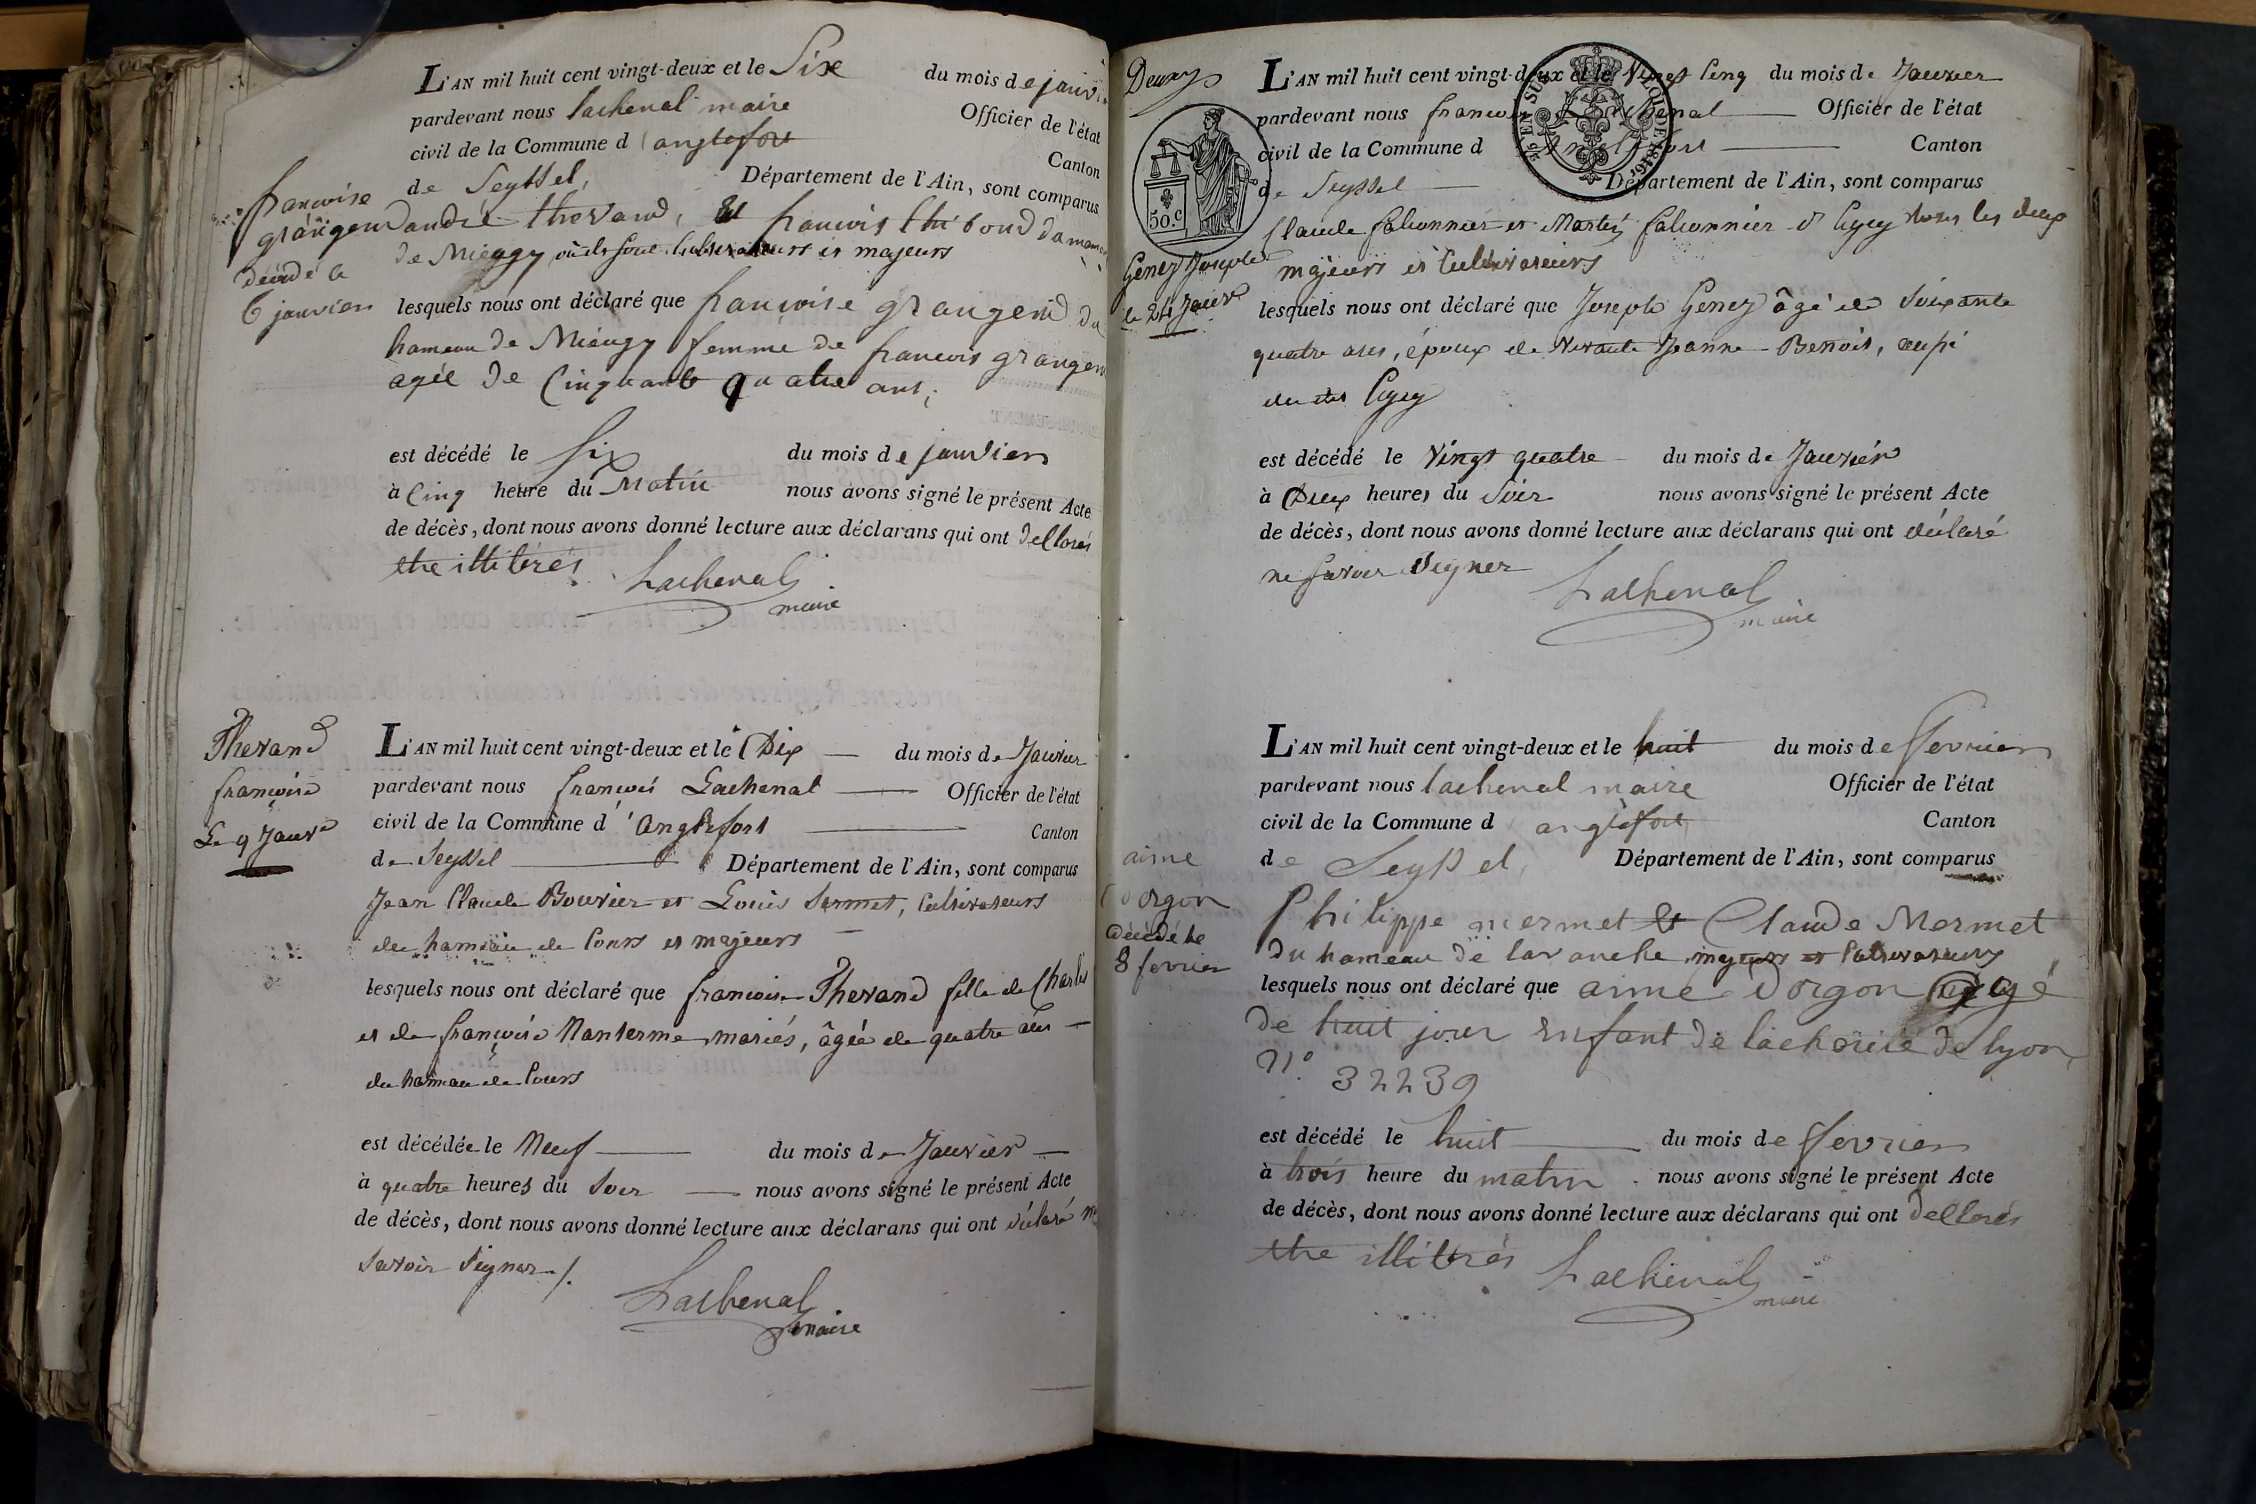 L'AN mil huit cent vingt-deux et le Six du mois de janvier
pardevant nous lachenal maire Officier de l'état
civil de la Commune d anglefort Canton
de Seyssel, Département de l'Ain, sont comparus
andré thevand, et francois thiboud du
de Miéugy où ils sont Cultivateurs et majeurs
lesquels nous ont déclaré que francoise grangend du
hameau de Miéugy femme de francois grangend
agée de Cinquante quatre ans,
est décédé le Six du mois de janvier
à Cinq heure du Matin nous avons signé le présent Acte
de décès, dont nous avons donné lecture aux déclarans qui ont dellarés
etre illitérés
Lachenal
maire
francoise
grangend
décédé le
6 janvier
Thevand
francoise
Le 9 Janvr
L'AN mil huit cent vingt-deux et le Dix du mois de Janvier
pardevant nous francois Lachenal Officier de l'état
civil de la Commune d'Anglefort Canton
de Seyssel Département de l'Ain, sont comparus
Jean Claude Bouvier et Louis Sermet, Cultivateurs
du hameau de Cours et majeurs
lesquels nous ont déclaré que francoise Thevand fille de Charles
et de francoise Nanterme mariés, âgée de quatre ans
du hameau de Cours
est décédée le Neuf du mois de Janvier
à quatre heures du Soir nous avons signé le présent Acte
de décès, dont nous avons donné lecture aux déclarans qui ont déclaré ne
savoir Signer ./.
Lachenal
maire
Deux
50.C
EN SUS
LOI DE 1816
Genez Joseph
le 24 Janvr
L'AN mil huit cent vingt-deux et le Vingt Cinq du mois de Janvier
pardevant nous francois Lachenal Officier de l'état
civil de la Commune d Anglefort Canton
de Seyssel Département de l'Ain, sont comparus
Claude falconnier et Martin falconnier d'Cyey tous les deux
majeurs et Cultivateurs
lesquels nous ont déclaré que Joseph Genez âgé de Soixante
quatre ans, époux de vivante Jeanne Benoit, aussi
du dit Cyey
est décédé le Vingt quatre du mois de Janvier
à Deux heures du Soir nous avons signé le présent Acte
de décès, dont nous avons donné lecture aux déclarans qui ont déclaré
ne savoir Signer
Lachenal
maire
aime
Dorgon
décédé le
8 fevrier
L'AN mil huit cent vingt-deux et le huit du mois de fevrier
pardevant nous lachenal maire Officier de l'état
civil de la Commune d anglefort Canton
de Seyssel, Département de l'Ain, sont comparus
Philippe mermet et Claude Mermet
du hameau de lavanche majeurs et Cultivateurs
lesquels nous ont déclaré que aime Dorgon agé
de huit jour enfant de lachorité de lyon
n° 32239
est décédé le huit du mois de fevrier
à trois heure du matin nous avons signé le présent Acte
de décès, dont nous avons donné lecture aux déclarans qui ont dellarés
etre illitérés
Lachenal
maire